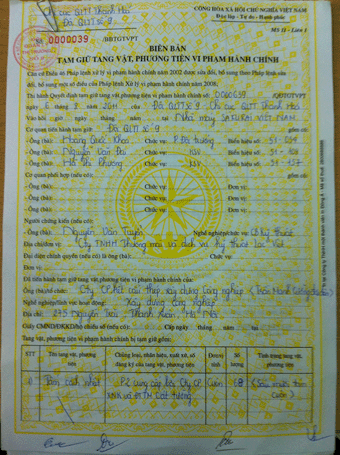 Chi cục QLTT Thanh Hoá
Đội QLTT số 9
CỘNG HÒA XÃ HỘI CHỦ NGHĨA VIỆT NAM
Độc lập - Tự do - Hạnh phúc
Số: 0000039 /BBTGTVPT
MS 11 - Liên 1
BIÊN BẢN
TẠM GIỮ TANG VẬT, PHƯƠNG TIỆN VI PHẠM HÀNH CHÍNH
Căn cứ Điều 46 Pháp lệnh xử lý vi phạm hành chính 2002 được sửa đổi, bổ sung theo Pháp lệnh sửa
đổi, bổ sung một số điều của Pháp lệnh Xử lý vi phạm hành chính năm 2008;
Thi hành Quyết định tạm giữ tang vật, phương tiện vi phạm hành chính số 0000039 /QĐTGTVPT
ngày 6 tháng 8 năm 2011 của Đội QLTT số 9 Chi cục QLTT Thanh Hoá
Hôm nay, ngày tháng năm tại Nhà máy SAKURAI VIỆT NAM
Cơ quan tiến hành tạm giữ: Đội QLTT số 9 gồm có:
- Ông (bà): Hoàng Quốc Khoa Chức vụ: P. Đội trưởng Biển hiệu số:
- Ông (bà): Nguyễn Văn Đại Chức vụ: KSV Biển hiệu số:
- Ông (bà): Phương Chức vụ: KSV Biển hiệu số:
Cơ quan phối hợp (nếu có): gồm có:
- Ông (bà): Chức vụ: Đơn vị:
- Ông (bà): Chức vụ: Đơn vị:
- Ông (bà): Chức vụ: Đơn vị:
Người chứng kiến (nếu có):
- Ông (bà): Nguyễn Văn Tuyến Nghề nghiệp/chức vụ: Kỹ thuật
Địa chỉ/đơn vị: Cty TNHH Thương mại và dịch vụ kỹ thuật Lạc Việt
Đại diện chính quyền (nếu có) là ông (bà): Chức vụ:
Đơn vị:
Đã tiến hành tạm giữ tang vật, phương tiện vi phạm hành chính của:
Ông (bà)/tổ chức: Cty xây dựng công nghiệp
Nghề nghiệp/lĩnh vực hoạt động: Xây dựng công nghiệp
Địa chỉ: 275 Nguyễn Trãi Thanh Xuân Hà Nội
Giấy CMND/ĐKKD/hộ chiếu số (nếu có): Cấp ngày tháng năm
Tang vật, phương tiện vi phạm hành chính bị tạm giữ gồm:
STT Tên tang vật, phương tiện Chủng loại, nhãn hiệu, xuất xứ, số đăng ký của tang vật, phương tiện Đơn vị tính Số lượng Tình trạng tang vật, phương tiện
Tấm cách nhiệt P2 cung cấp bởi Cty CP XNK và ĐTTM Cát Tường Cuộn 68 (Sáu mươi tám cuộn)